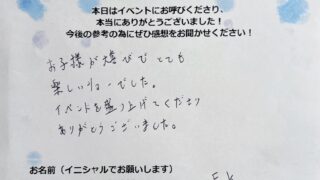 本日はイベントにお呼びくださり、
本当にありがとうございました！
今後の参考の為にぜひ感想をお聞かせください！
お子様が喜びとても
楽しいショーでした。
イベントを盛り上げてくださり
ありがとうございました。
お名前（イニシャルでお願いします）